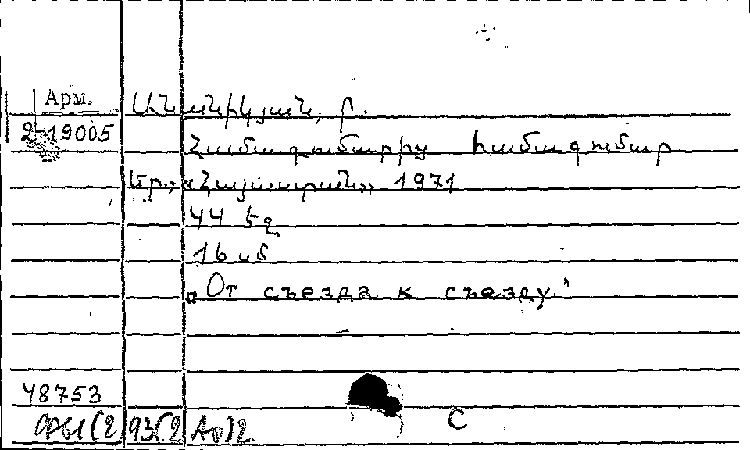 Арм.
2-19005
Անանիկյան, Ր.
Համագումարից համագումար
Եր., «Հայաստան», 1971
44 էջ
16 սմ
„От съезда к съезду"
48753
С